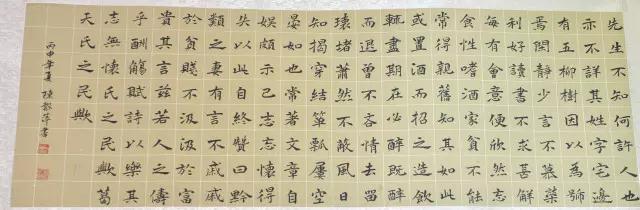 先生不知何許人也
亦不詳其姓字宅邊
有五柳樹因以為號
焉閑靜少言不慕榮
利好讀書不求甚解
每有會意便欣然忘
食性嗜酒家貧不能
常得親舊知其如此
或置酒而招之造飲
輒盡期在必醉既醉
而退曾不吝情去留
環堵蕭然不蔽風日
短褐穿結簞瓢屢空
晏如也常著文章自
娛頗示己志忘懷得
失以此自終贊曰黔
婁之妻有言不戚戚
於貧賤不汲汲於富
貴其言茲若人之儔
乎酬觴賦詩以樂其
志無懷氏之民歟葛
天氏之民歟
丙申年夏 萍書